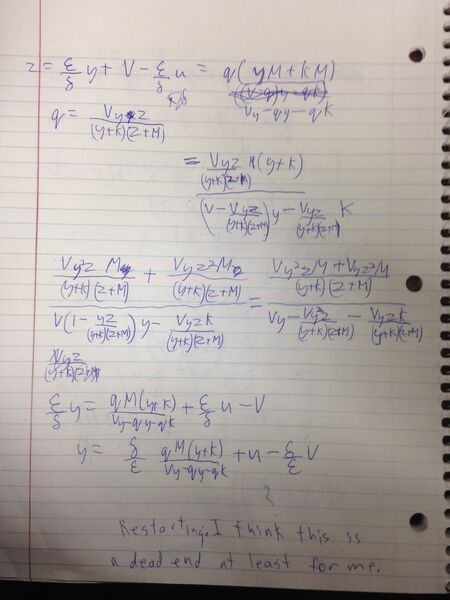 z = ε/δ y + V - ε/δ u = q(yM + kM) / Vy-qy-qk
q = Vyz / (y+k)(z+M)
= Vyz/(y+k)(z+M) M(y+k) / (V - Vyz/(y+k)(z+M))y - Vyz/(y+k)(z+M) K
Vy²z M/(y+k)(z+M) + Vyz²M/(y+k)(z+M) = Vy²zM + Vyz²M/(y+k)(z+M)
V(1 - yz/(y+k)(z+M))y - Vyzk/(y+k)(z+M) Vy - Vy²z/(y+k)(z+M) - Vyzk/(y+k)(z+M)
Vyz/(y+k)(z+M)
ε/δ y = qM(y+k)/Vy-qy-qk + ε/δ u - V
y = δ/ε qM(y+k)/Vy-qy-qk + u - δ/ε V
Restarting. I think this is
a dead end at least for me.